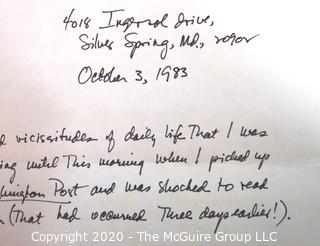 4018 Ingersol Drive,
Silver Spring, Md., 20902
October 3, 1983
vicissitudes of daily life That I was
ing until This morning when I picked up
hington Post and was shocked to read
(That had occurred Three days earlier!).
Copyright 2020 - The McGuire Group LLC